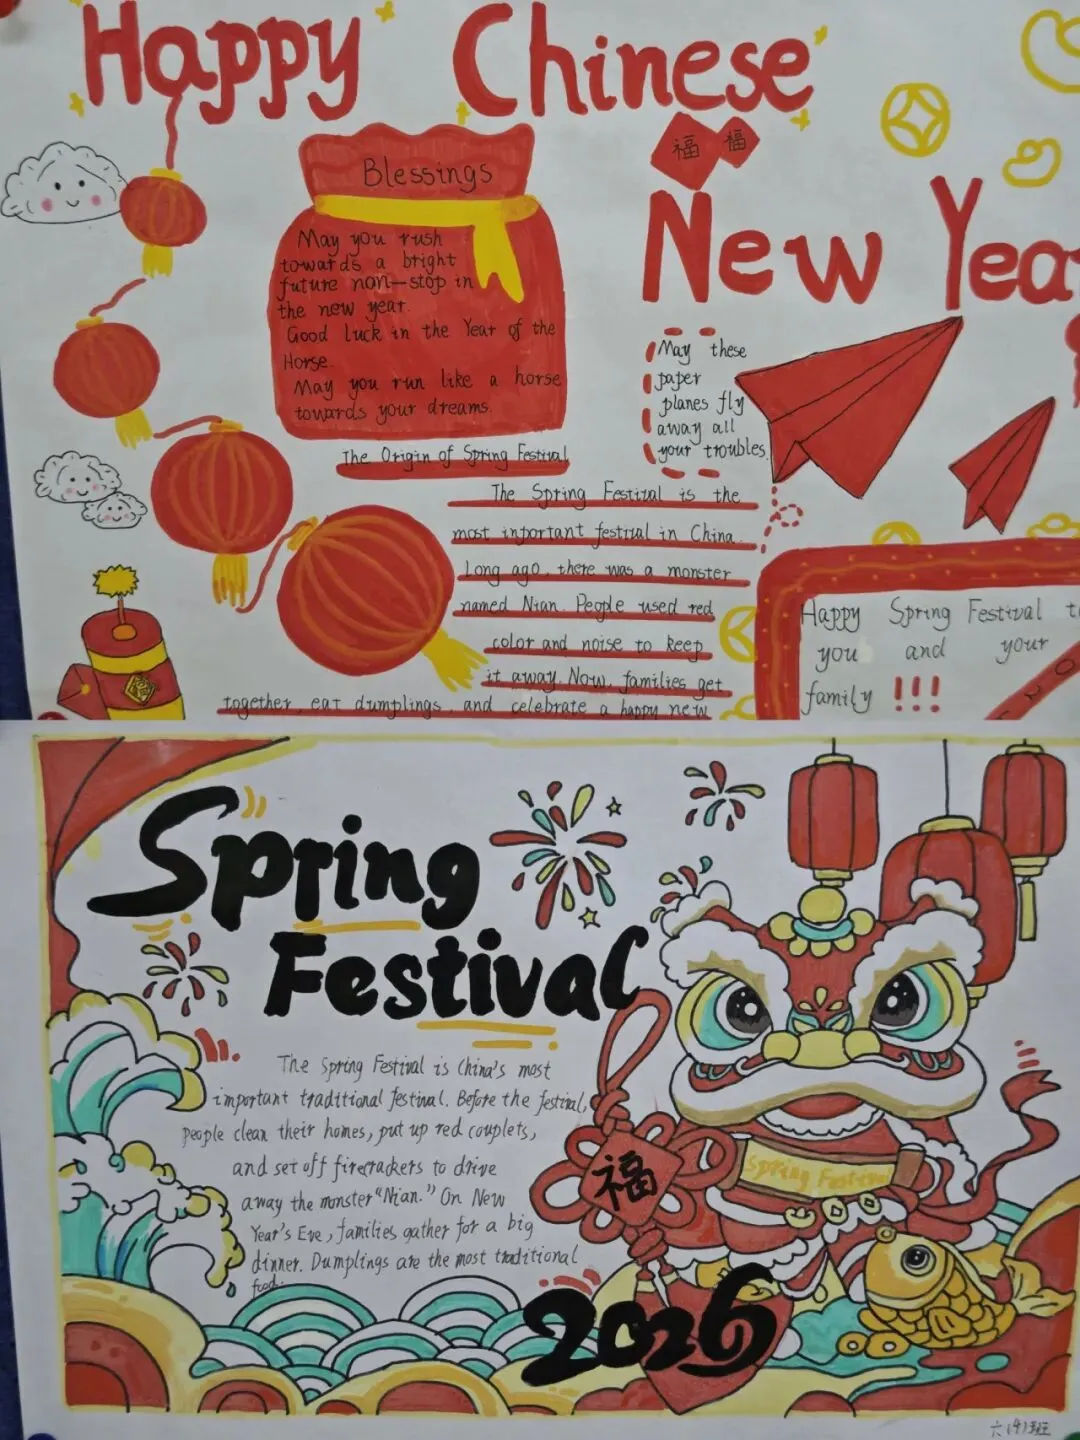 Happy Chinese
福 福
New Year
Blessings
May you rush
towards a bright
future non-stop in
the new year.
Good luck in the Year of the
Horse.
May you run like a horse
towards your dreams.
May these
paper
planes fly
away all
your troubles.
The Origin of Spring Festival
The Spring Festival is the
most inportant festival in China.
Long ago, there was a monster
named Nian. People used red
color and noise to keep
it away. Now, families get
together, eat dumplings, and celebrate a happy new
Happy Spring Festival t
you and your
family !!!
Spring
Festival
The Spring Festival is China's most
important traditional festival. Before the festival,
people clean their homes, put up red couplets,
and set off firecrackers to drive
away the monster "Nian." On New
Year's Eve, families gather for a big
dinner. Dumplings are the most traditional
food.
福
Spring Festival
2026
六(4)班